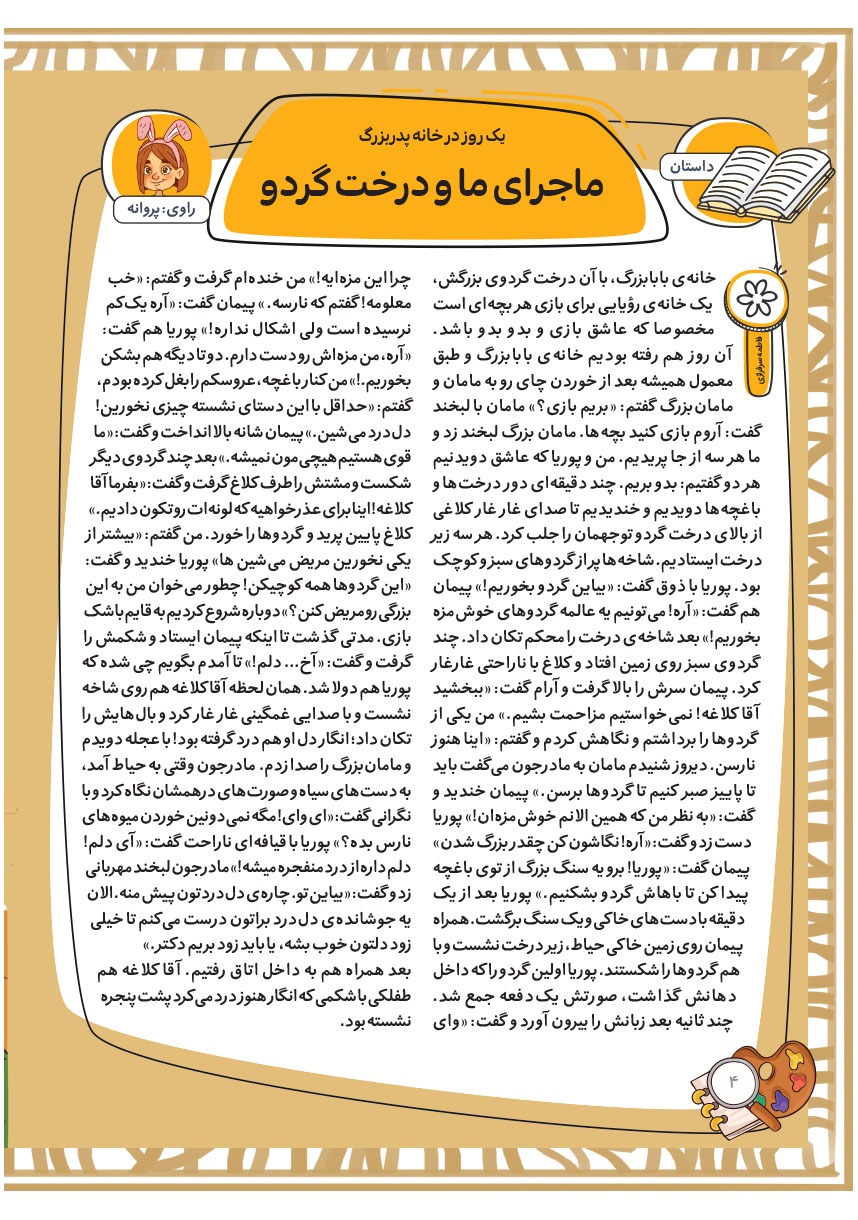 یک روز در خانه پدربزرگ
ماجرای ما و درخت گردو
داستان
راوی: پروانه
فاطمه سرفرازی
خانه‌ی بابابزرگ، با آن درخت گردوی بزرگش،
یک خانه‌ی رؤیایی برای بازی هر بچه‌ای است
مخصوصا که عاشق بازی و بدو بدو باشد.
آن روز هم رفته بودیم خانه‌ی بابابزرگ و طبق
معمول همیشه بعد از خوردن چای رو به مامان و
مامان بزرگ گفتم: «بریم بازی؟» مامان با لبخند
گفت: آروم بازی کنید بچه ها. مامان بزرگ لبخند زد و
ما هر سه از جا پریدیم. من و پوریا که عاشق دویدنیم
هر دو گفتیم: بدو بریم. چند دقیقه‌ای دور درخت‌ها و
باغچه‌ها دویدیم و خندیدیم تا صدای غار غار کلاغی
از بالای درخت گردو توجهمان را جلب کرد. هر سه زیر
درخت ایستادیم. شاخه‌ها پر از گردوهای سبز و کوچک
بود. پوریا با ذوق گفت: «بیاین گردو بخوریم!» پیمان
هم گفت: «آره! می‌تونیم یه عالمه گردوهای خوش‌مزه
بخوریم!» بعد شاخه‌ی درخت را محکم تکان داد. چند
گردوی سبز روی زمین افتاد و کلاغ با ناراحتی غارغار
کرد. پیمان سرش را بالا گرفت و آرام گفت: «ببخشید
آقا کلاغه! نمی‌خواستیم مزاحمت بشیم.» من یکی از
گردوها را برداشتم و نگاهش کردم و گفتم: «اینا هنوز
نارسن. دیروز شنیدم مامان به مادرجون می‌گفت باید
تا پاییز صبر کنیم تا گردوها برسن.» پیمان خندید و
گفت: «به نظر من که همین الانم خوش‌مزه‌ان!» پوریا
دست زد و گفت: «آره! نگاشون کن چقدر بزرگ شدن»
پیمان گفت: «پوریا! برو یه سنگ بزرگ از توی باغچه
پیدا کن تا باهاش گردو بشکنیم.» پوریا بعد از یک
دقیقه با دست‌های خاکی و یک سنگ برگشت. همراه
پیمان روی زمین خاکی حیاط، زیر درخت نشست و با
هم گردوها را شکستند. پوریا اولین گردو را که داخل
دهانش گذاشت، صورتش یک دفعه جمع شد.
چند ثانیه بعد زبانش را بیرون آورد و گفت: «وای
چرا این مزه‌ایه!» من خنده‌ام گرفت و گفتم: «خب
معلومه! گفتم که نارسه.» پیمان گفت: «آره یک‌کم
نرسیده است ولی اشکال نداره!» پوریا هم گفت:
«آره، من مزه‌اش رو دست دارم. دو تا دیگه هم بشکن
بخوریم.!» من کنار باغچه، عروسکم را بغل کرده بودم،
گفتم: «حداقل با این دستای نشسته چیزی نخورین!
دل درد می‌شین.» پیمان شانه بالا انداخت و گفت: «ما
قوی هستیم هیچی‌مون نمیشه.» بعد چند گردوی دیگر
شکست و مشتش را طرف کلاغ گرفت و گفت: «بفرما آقا
کلاغه! اینا برای عذرخواهیه که لونه‌ات رو تکون دادیم.»
کلاغ پایین پرید و گردوها را خورد. من گفتم: «بیشتر از
یکی نخورین مریض می‌شین ها» پوریا خندید و گفت:
«این گردوها همه کوچیکن! چطور می‌خوان من به این
بزرگی رو مریض کنن؟» دوباره شروع کردیم به قایم‌باشک
بازی. مدتی گذشت تا اینکه پیمان ایستاد و شکمش را
گرفت و گفت: «آخ... دلم!» تا آمدم بگویم چی شده که
پوریا هم دولا شد. همان لحظه آقا کلاغه هم روی شاخه
نشست و با صدایی غمگینی غار غار کرد و بال‌هایش را
تکان داد؛ انگار دل او هم درد گرفته بود! با عجله دویدم
و مامان بزرگ را صدا زدم. مادرجون وقتی به حیاط آمد،
به دست‌های سیاه و صورت‌های درهمشان نگاه کرد و با
نگرانی گفت: «ای وای! مگه نمی‌دونین خوردن میوه‌های
نارس بده؟» پوریا با قیافه‌ای ناراحت گفت: «آی دلم!
دلم داره از درد منفجره میشه!» مادرجون لبخند مهربانی
زد و گفت: «بیاین تو. چاره‌ی دل دردتون پیش منه. الان
یه جوشانده‌ی دل درد براتون درست می‌کنم تا خیلی
زود دلتون خوب بشه، یا باید زود بریم دکتر.»
بعد همراه هم به داخل اتاق رفتیم. آقا کلاغه هم
طفلکی با شکمی که انگار هنوز درد می‌کرد پشت پنجره
نشسته بود.
۴